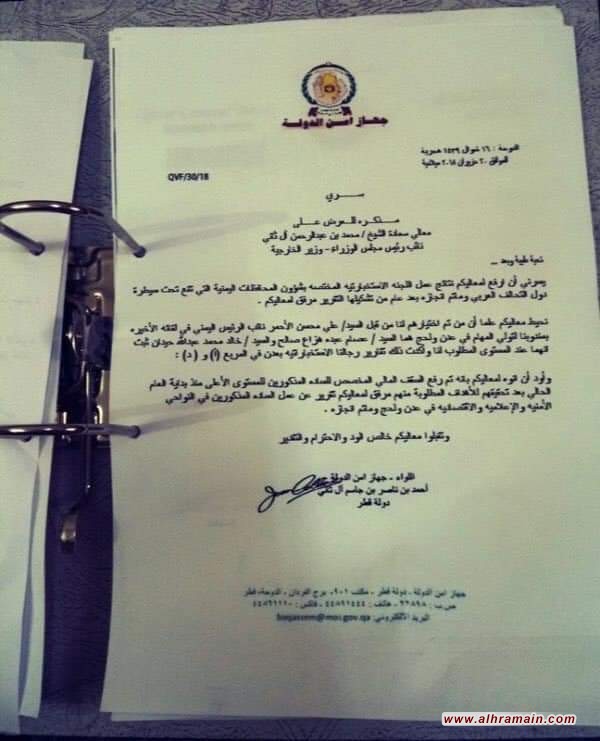 جهاز أمن الدولة
الدوحة : ١٦ شوال ١٤٣٩ هجرية
الموافق ٣٠ حزيران ٢٠١٨ ميلادية
QVF/30/18
سري
مذكره للعرض على
معالي سعادة الشيخ / محمد بن عبدالرحمن آل ثاني
نائب رئيس مجلس الوزراء - وزير الخارجية
تحية طيبة وبعد ..
يسرني أن ارفع لمعاليكم نتائج عمل اللجنه الاستخباراتيه المختصه بشؤون المحافظات اليمنية التي تقع تحت سيطرة
دول التحالف العربي وماتم انجازه بعد عام من تشكيلها التقرير مرفق لمعاليكم .
نحيط معاليكم علما أن من تم اختيارهم لنا من قبل السيد/ علي محسن الأحمر نائب الرئيس اليمني في لقائه الأخيره
بمندوبنا لتولي المهام في عدن ولحج هما السيد / عصام عبده هزاع صالح والسيد / خالد محمد عبدالله حيدان ثبت
انهما عند المستوى المطلوب لنا وأكدت ذلك تقارير رجالنا الاستخباراتيه بعدن في المربع (أ) و ( د) :
وأود أن انوه لمعاليكم بانه تم رفع السقف المالي المخصص للساده المذكورين للمستوى الأعلى منذ بداية العام
الحالي بعد تحقيقهم للأهداف المطلوبة منهم مرفق لمعاليكم تقرير عن عمل الساده المذكورين في النواحي
الأمنيه والإعلاميه والاقتصاديه في عدن ولحج وماتم انجازه .
وتقبلوا معاليكم خالص الود والاحترام والتقدير
اللواء - جهاز امن الدولة
أحمد بن ناصر بن جاسم آل ثاني
دولة قطر
جهاز امن الدولة - دولة قطر - مكتب ٩٠١ - برج الفردان - الدوحة، قطر
ص.ب : ٢٢٨٩٨ - هاتف : ٤٤٨٩١٤٤٤ - فاكس :
البريد الالكتروني:
www.alhramain.com